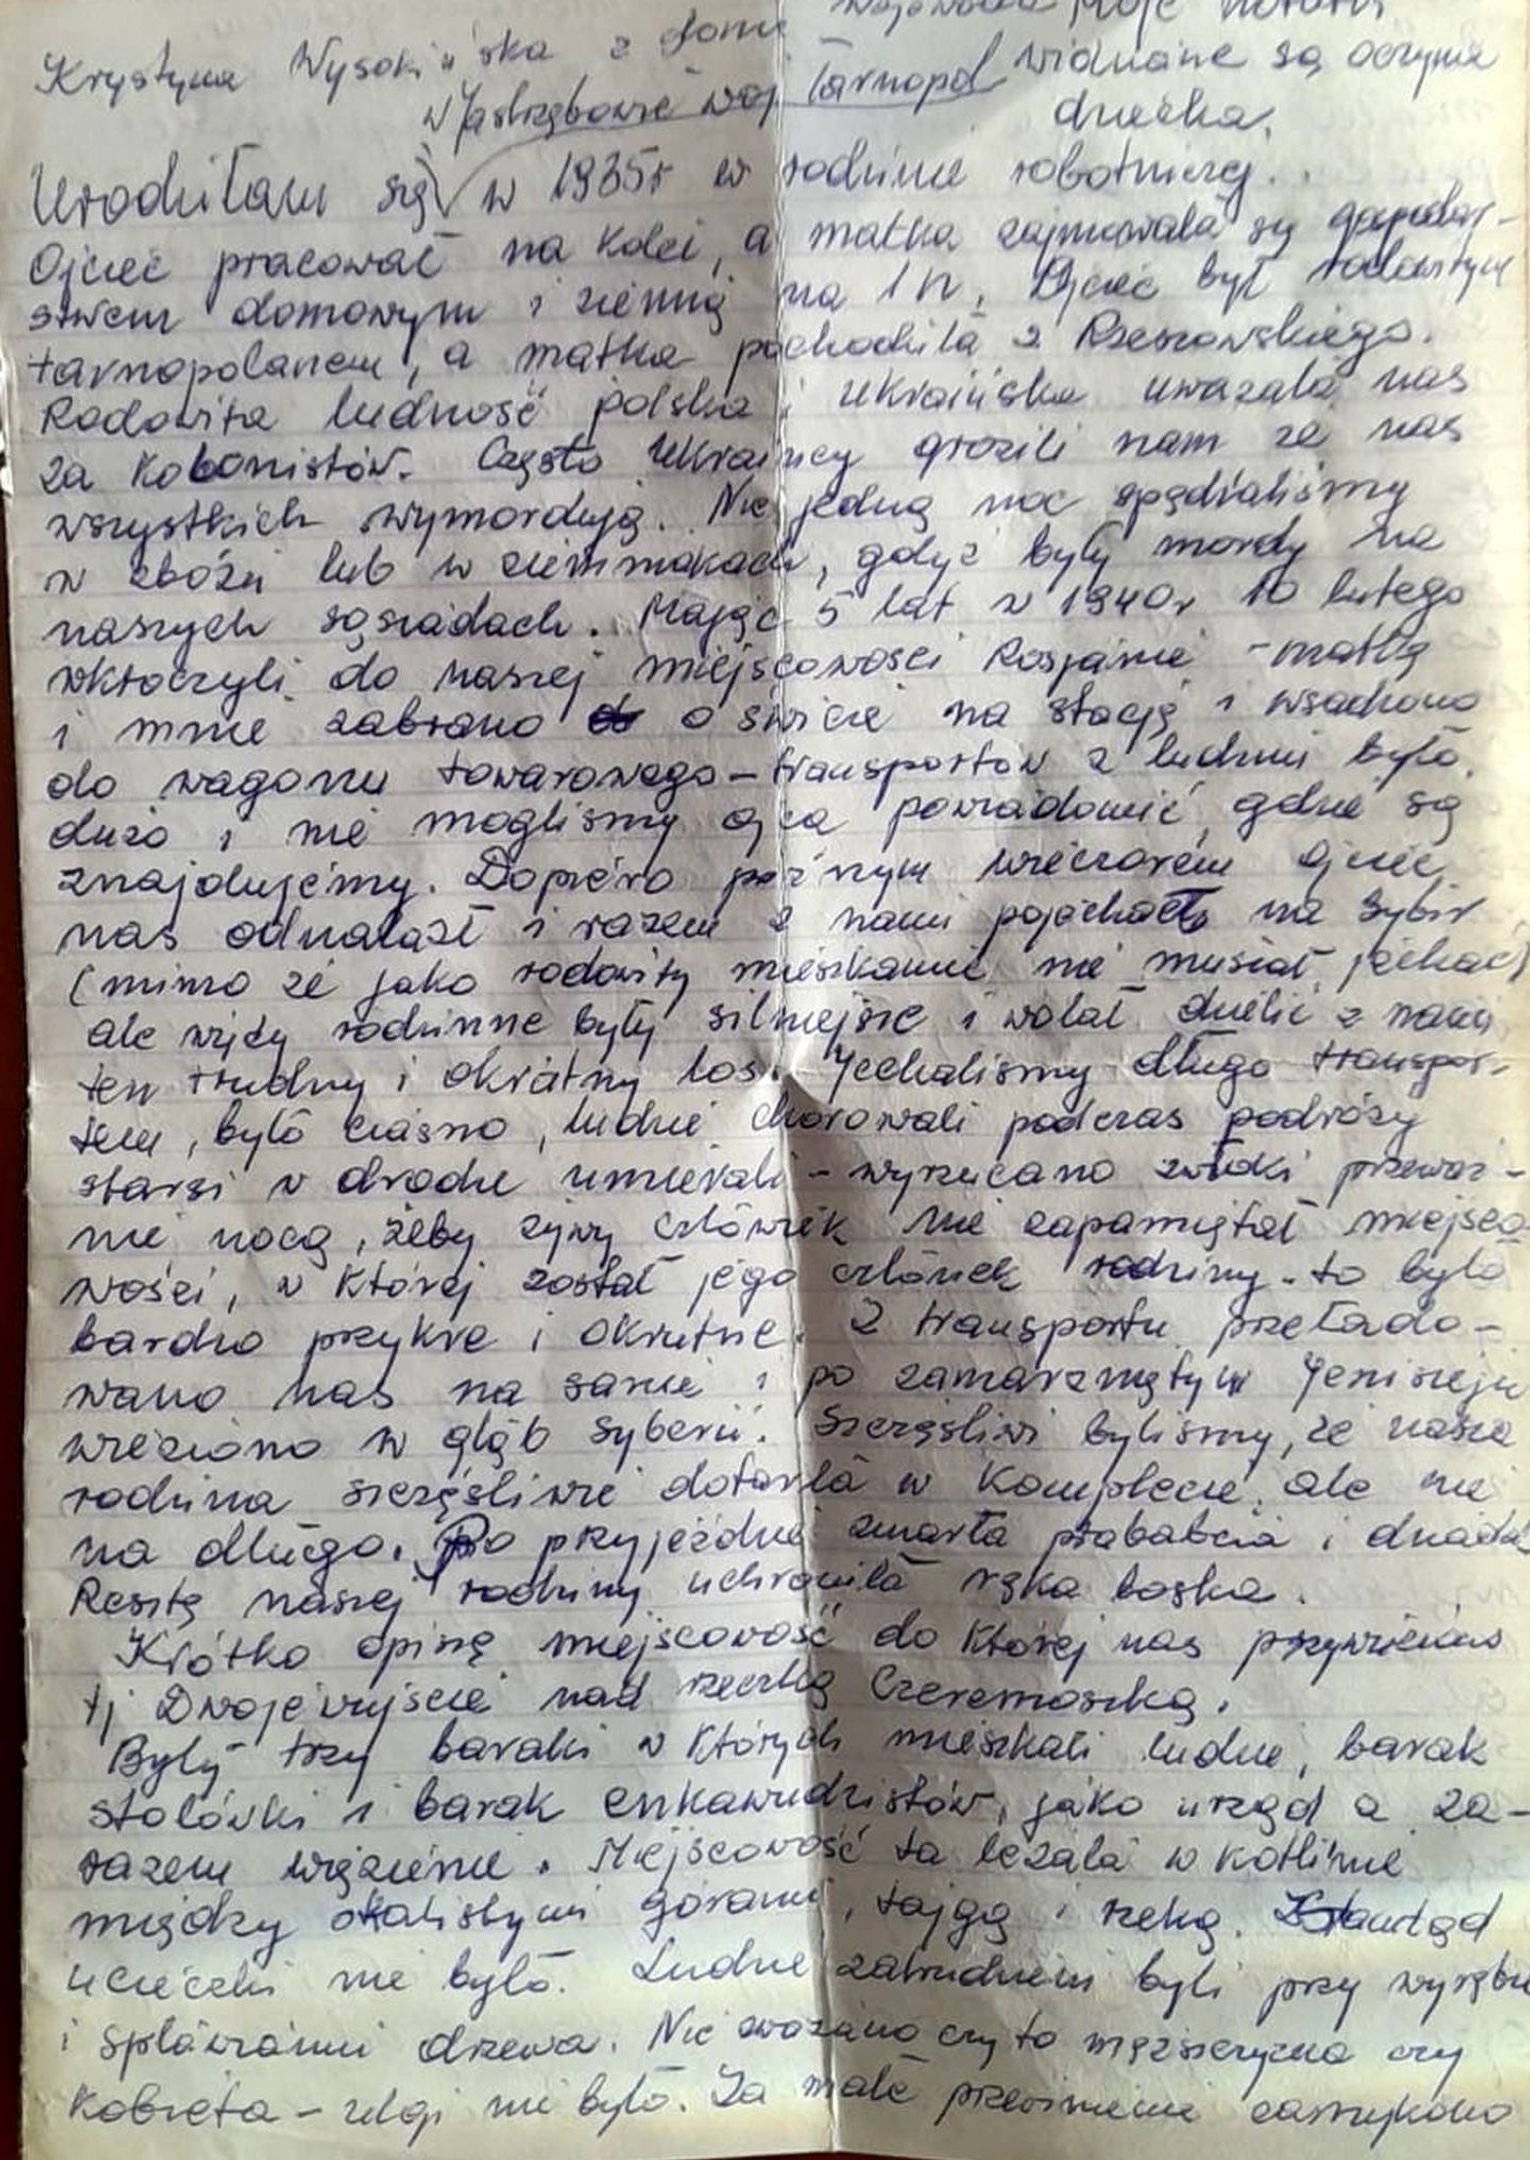 Moje notatki
Krystyna Wysokińska z domu widziane są oczyma
w Jastrzębowie woj Tarnopol dziecka.
Urodziłam się w 1935r w rodzinie robotniczej.
Ojciec pracował na kolei, a matka zajmowała się gospodar-
stwem domowym i ziemią na 1 h. Ojciec był rodowitym
tarnopolanem, a matka pochodziła z Rzeszowskiego.
Rodowita ludność polska i ukraińska uważała nas
za kolonistów. Często Ukraińcy grozili nam że nas
wszystkich wymordują. Nie jedną noc spędzialiśmy
w zbożu lub w ziemniakach, gdyż były mordy na
naszych sąsiadach. Mając 5 lat w 1940r 10 lutego
wktoczyli do naszej miejscowości Rosjanie - matkę
i mnie zabrano o świcie na stację i wsadzono
do wagonu towarowego - transportów z ludźmi było
dużo i nie mogliśmy ojca powiadomić gdzie się
znajdujemy. Dopiero późnym wieczorem ojciec
nas odnalazł i razem z nami pojechał na Sybir
(mimo że jako rodowity mieszkaniec nie musiał jechać)
ale więzy rodzinne były silniejsze i wolał dzielić z nami
ten trudny i okrutny los. Jechaliśmy długo transpor-
tem, było ciasno, ludzie chorowali podczas podróży
starsi w drodze umierali - wyrzucano zwłoki przeważ-
nie nocą, żeby żywy człowiek nie zapamiętał miejsco-
wości, w której został jego członek rodziny - to było
bardzo przykre i okrutne. Z transportu przełado-
wano nas na sanie i po zamarzniętym Jenisieju
wieziono w głąb Syberii. Szczęśliwi byliśmy, że nasza
rodzina szczęśliwie dotarła w komplecie, ale nie
na długo. Po przyjeździe zmarła prababcia i dziadek
Resztę naszej rodziny uchroniła ręka boska.
Krótko opiszę miejscowość do której nas przywieziono
tj Dwojewyjście nad rzeczką Czeremoszką.
Były trzy baraki w których mieszkali ludzie, barak
stołówki i barak enkawudzistów, jako urząd a za-
razem więzienie. Miejscowość ta leżała w kotlinie
między skalistymi górami, tajgą i rzeką. Stamtąd
ucieczki nie było. Ludzie zatrudnieni byli przy wyrębie
i spławianiu drzewa. Nie zważano czy to mężczyzna czy
kobieta - ulgi nie było. Za małe przewinienie zamykano